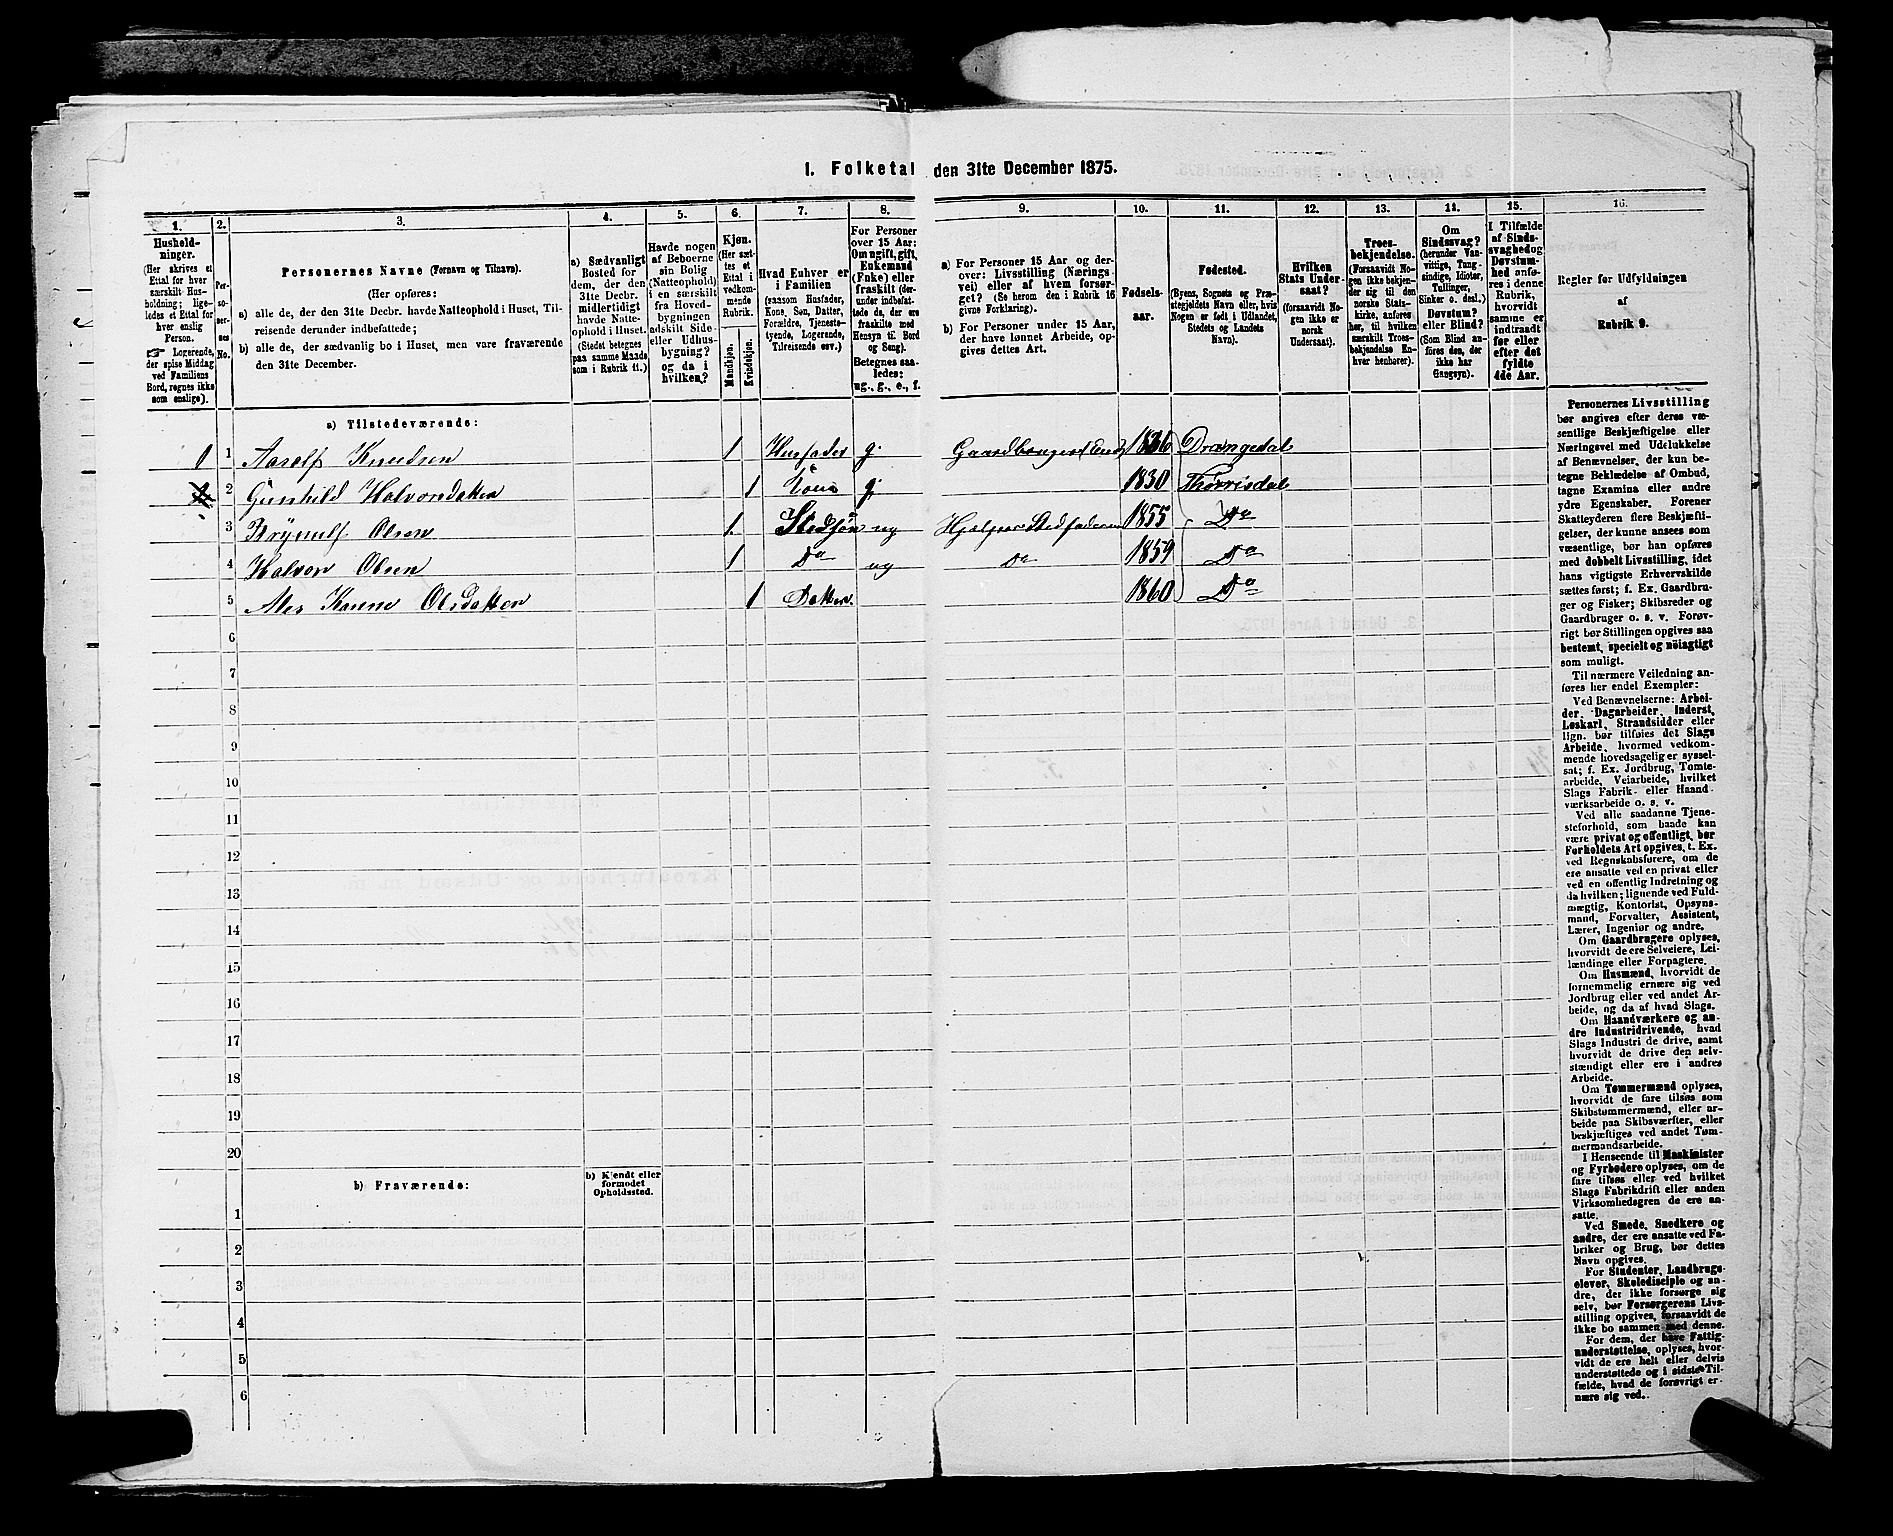 1. Folketal den 31te December 1875.
1. 2. 3. 4. 5. 6. 7. 8. 9. 10. 11. 12. 13. 14. 15. 16.
Hushold-
ninger.
(Her skrives et
Ettal for hver
særskilt Hus-
holdning; lige-
ledes et Ettal for
hver enslig
Person.
☞ Logerende,
der spise Middag
ved Familiens
Bord, regnes ikke
som enslige).
Per-
so-
ner-
nes
No.
Personernes Navne (Fornavn og Tilnavn).
(Her opføres:
a) alle de, der den 31te Decbr. havde Natteophold i Huset, Til-
reisende derunder indbefattede;
b) alle de, der sædvanlig bo i Huset, men vare fraværende
den 31te December.
a) Sædvanligt
Bosted for
dem, der den
31te Decbr.
midlertidigt
havde Natte-
ophold i Huset.
(Stedet betegnes
paa samme Maade
som i Rubrik 11.)
Havde nogen
af Beboerne
sin Bolig
(Natteophold)
i en særskilt
fra Hoved-
bygningen
adskilt Side-
eller Udhus-
bygning?
og da i
hvilken?
Kjøn.
(Her sæt-
tes et
Ettal i
vedkom-
mende
Rubrik.
Mandkjøn.
Kvindekjøn.
Hvad Enhver er
i Familien
(saasom Husfader,
Kone, Søn, Datter,
Forældre, Tjeneste-
tyende, Logerende,
Tilreisende osv.)
For Personer
over 15 Aar:
Om ugift, gift,
Enkemand
(Enke) eller
fraskilt (der-
under indbefat-
tede de, der ere
fraskilte med
Hensyn til Bord
og Seng).
Betegnes saa-
ledes:
ug., g., e., f.
a) For Personer 15 Aar og der-
over: Livsstilling (Nærings-
vei) eller af hvem forsør-
get? (Se herom den i Rubrik 16
givne Forklaring).
b) For Personer under 15 Aar,
der have lønnet Arbeide, op-
gives dettes Art.
Fødsels-
aar.
Fødested.
(Byens, Sognets og Præ-
stegjeldets Navn eller, hvis
Nogen er født i Udlandet,
Stedets og Landets
Navn).
Hvilken
Stats Under-
saat?
(forsaavidt No-
gen ikke er
norsk
Undersaat).
Troes-
bekjendelse.
(Forsaavidt No-
gen ikke bekjen-
der sig til den
norske Stats-
kirke, anføres
her, til hvilken
særskilt Troes-
bekjendelse En-
hver henhører).
Om
Sindssvag?
(herunder Van-
vittige, Tung-
sindige, Idioter,
Tullinger,
Sinker o. desl.)
Døvstum?
eller Blind?
(Som Blind an-
føres den, der
ikke har
Gangsyn).
I Tilfælde
af Sinds-
svaghed og
Døvstum-
hed anfø-
res i denne
Rubrik,
hvorvidt
samme er
indtraadt
før eller
efter det
fyldte
4de Aar.
Regler for Udfyldningen
af
Rubrik 9.
a) Tilstedeværende:
1 1 Aarolf Knudsen 1 Husfader g. 1836 Drangedal
2 Gunhild Halvorsdatter 1 Kone g. 1830 Thørrisdal
3 Brynulf Olsen 1. Stedsøn ug Hjælper Stedfaderen 1855 Do
4 Halvor Olsen 1 Do ug Do 1859 Do
5 Karine Olsdatter 1 Datter. 1860 Do
6
7
8
9
10
11
12
13
14
15
16
17
18
19
20
b) Fraværende:
b) Kjendt eller
formodet
Opholdssted.
1
2
3
4
5
6
Personernes Livsstilling
bør angives efter deres væ-
sentlige Beskjæftigelse eller
Næringsvei med Udelukkelse
af Benævnelser, der kun be-
tegne Beklædelse af Ombud,
tagne Examina eller andre
ydre Egenskaber. Forener
Skatteyderen flere Beskjæfti-
gelser, der kunne ansees som
væsentlige, bør han opføres
med dobbelt Livsstilling, idet
hans vigtigste Erhvervskilde
sættes først; f. Ex. Gaardbru-
ger og Fisker; Skibsreder og
Gaardbruger o. s. v. Forøv-
rigt bør Stillingen opgives saa
bestemt, specielt og nöiagtigt
som muligt.
Til nærmere Veiledning an-
føres her endel Exempler:
Ved Benævnelserne: Arbei-
der, Dagarbeider, Inderst,
Løskarl, Strandsidder eller
lign. bør tilføies det Slags
Arbeide, hvormed vedkom-
mende hovedsagelig er syssel-
sat; f. Ex. Jordbrug, Tomte-
arbeide, Veiarbeide, hvilket
Slags Fabrik- eller Haand-
værksarbeide o. s. v.
Ved alle saadanne Tjene-
steforhold, som baade kan
være privat og offentligt, bør
Forholdets Art opgives, f. Ex.
ved Regnskabsførere, om de
ere ansatte ved en privat eller
ved en offentlig Indretning og
da hvilken; lignende ved Fuld-
mægtig, Kontorist, Opsyns-
mand, Forvalter, Assistent,
Lærer, Ingeniør og andre.
Om Gaardbrugere oplyses,
hvorvidt de ere Selveiere, Lei-
lændinge eller Forpagtere.
Om Husmænd, hvorvidt de
fornemmelig ernære sig ved
Jordbrug eller ved andet Ar-
beide, og da af hvad Slags.
Om Haandværkere og an-
dre Industridrivende, hvad
Slags Industri de drive, samt
hvorvidt de drive den selv-
stændigt eller ere i andres
Arbeide.
Om Tømmermænd oplyses,
hvorvidt de fare tilsøs som
Skibstømmermænd, eller ar-
beide paa Skibsværfter, eller
beskjæftiges ved andet Tøm-
mermandsarbeide.
I Henseende til Maskinister
og Fyrbødere oplyses, om de
fare tilsøs eller ved hvilket
Slags Fabrikdrift eller anden
Virksomhedsgren de ere an-
satte.
Ved Smede, Snedkere og
andre, der ere ansatte ved Fa-
briker og Brug, bør dettes
Navn opgives.
For Studenter, Landbrugs-
elever, Skoledisciple og an-
dre, der ikke forsørge sig
selv, bør Forsørgerens Livs-
stilling opgives, forsaavidt de
ikke bo sammen med denne.
For dem, der have Fattig-
understøttelse, oplyses, hvor-
vidt de ere helt eller delvis
understøttede og i sidste Til-
fælde, hvad de forøvrigt er-
nære sig ved.